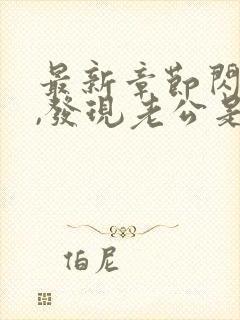 最新章節閃
,發現老公是
伯尼